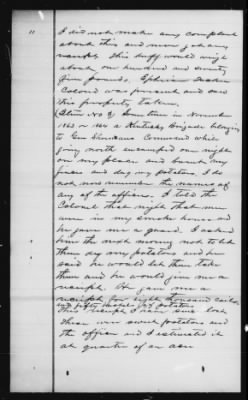 I did not make any complaint
about this and never got any
receipt. This beef would weigh
about one hundred and seventy
five pounds. Ephrim
Colored was present and saw
this property taken.
(Item No 8) Some time in November
1863 or 1864 a Kentucky Brigade belonging
to Gen Command while
going north encamped one night
on my place and burnt my
fences and dug my potatoes. I do
not now remember the names of
any of the officers. I told the
Colonel that night that men
were in my smoke house and
he gave me a guard. I asked
him the next morning not to let
them dig my potatoes and he
said he would let them take
them and he would give me a
receipt. He gave me a
receipt for eight thousand rails
and fifty bushels of potatoes
This receipt I have since lost
These were sweet potatoes and
the officer and I estimated it
at quarter of an acre